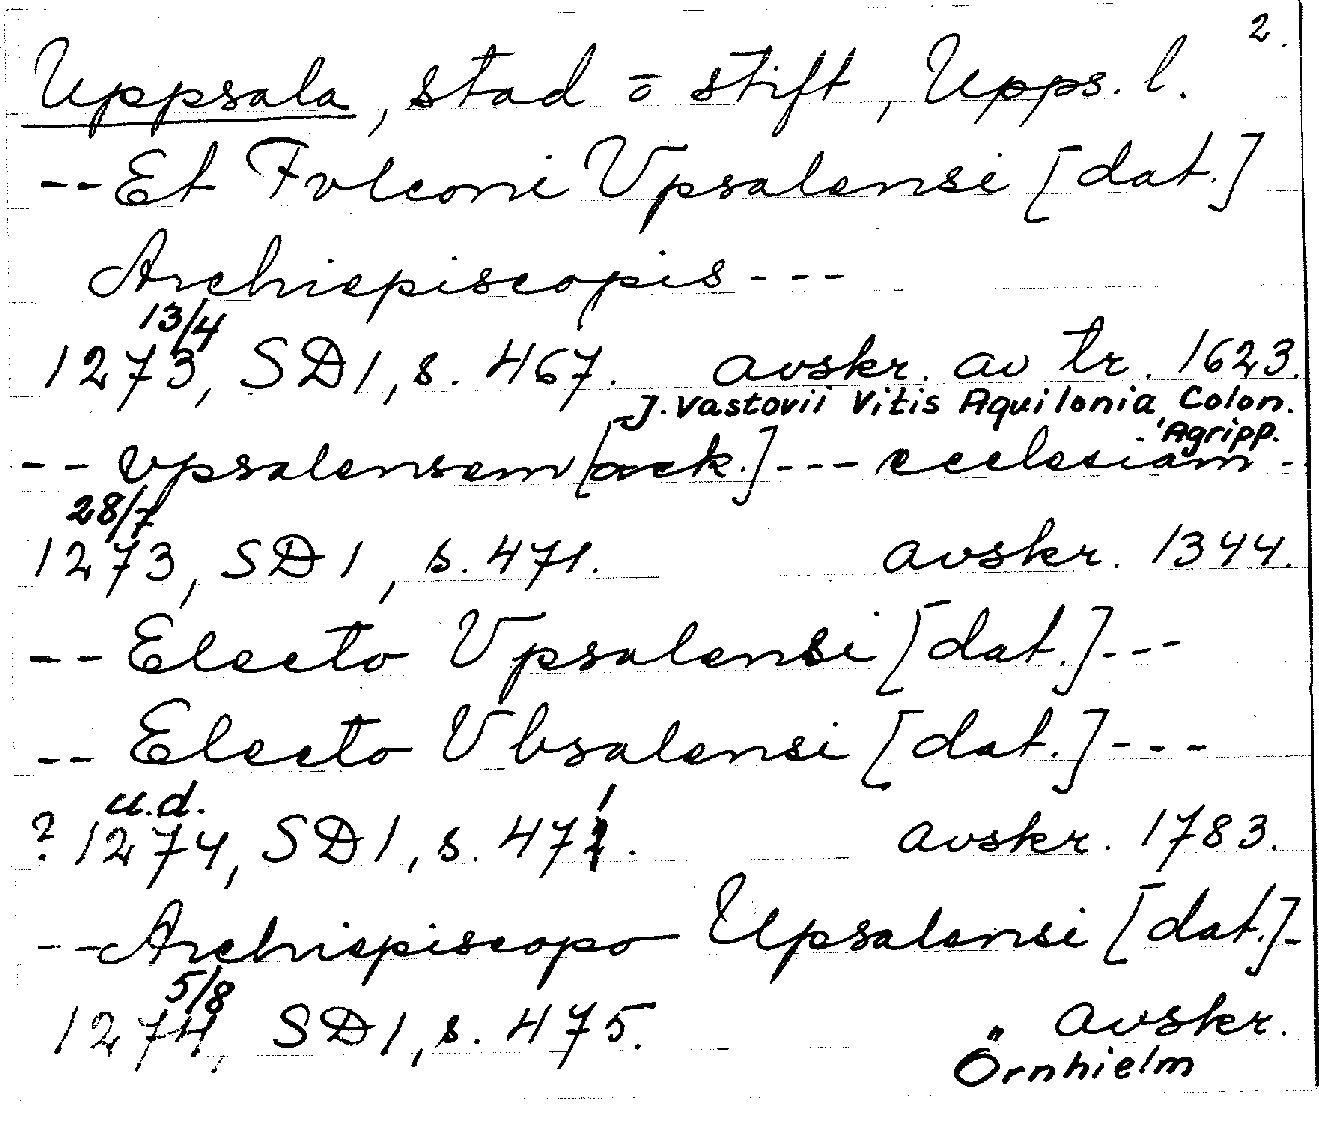 2.
Uppsala, stad o stift, Upps. l.
-- Et Fvlconi Vpsalensi [dat.]
Archiepiscopis ---
13/4
1273, SD 1, s. 467. avskr. av tr. 1623.
J. Vastovii Vitis Aquilonia Colon.
Agripp.
-- vpsalensem [ack.] --- ecclesiam -
28/7
1273, SD 1, s. 471. avskr. 1344.
-- Electo Vpsalensi [dat.] ---
-- Electo Vbsalensi [dat.] ---
u.d.
? 1274, SD 1, s. 471. avskr. 1783.
-- Archiepiscopo Upsalensi [dat.] -
5/8
1274, SD 1, s. 475. avskr.
Örnhielm